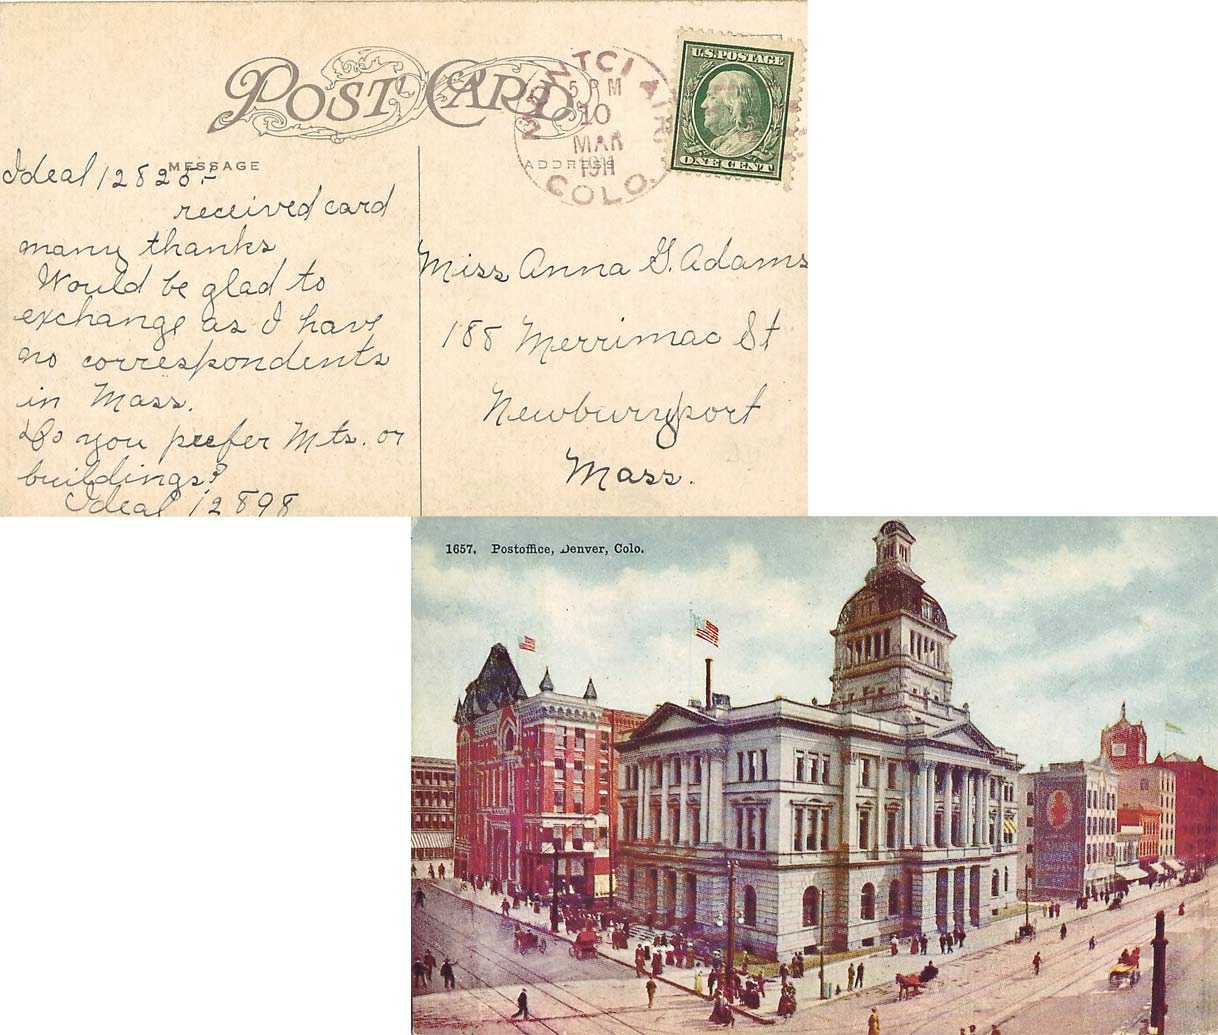 POST CARD
MONTCLAIR
5 PM
10
MAR
1911
COLO.
U.S. POSTAGE
ONE CENT
MESSAGE
ADDRESS
Ideal 12825,-
received card
many thanks
Would be glad to
exchange as I have
no correspondents
in Mass.
Do you prefer Mts. or
buildings?
Ideal 12898
Miss Anna G. Adams
188 Merrimac St
Newburyport
Mass.
1657. Postoffice, Denver, Colo.
CURIO
COMPANY